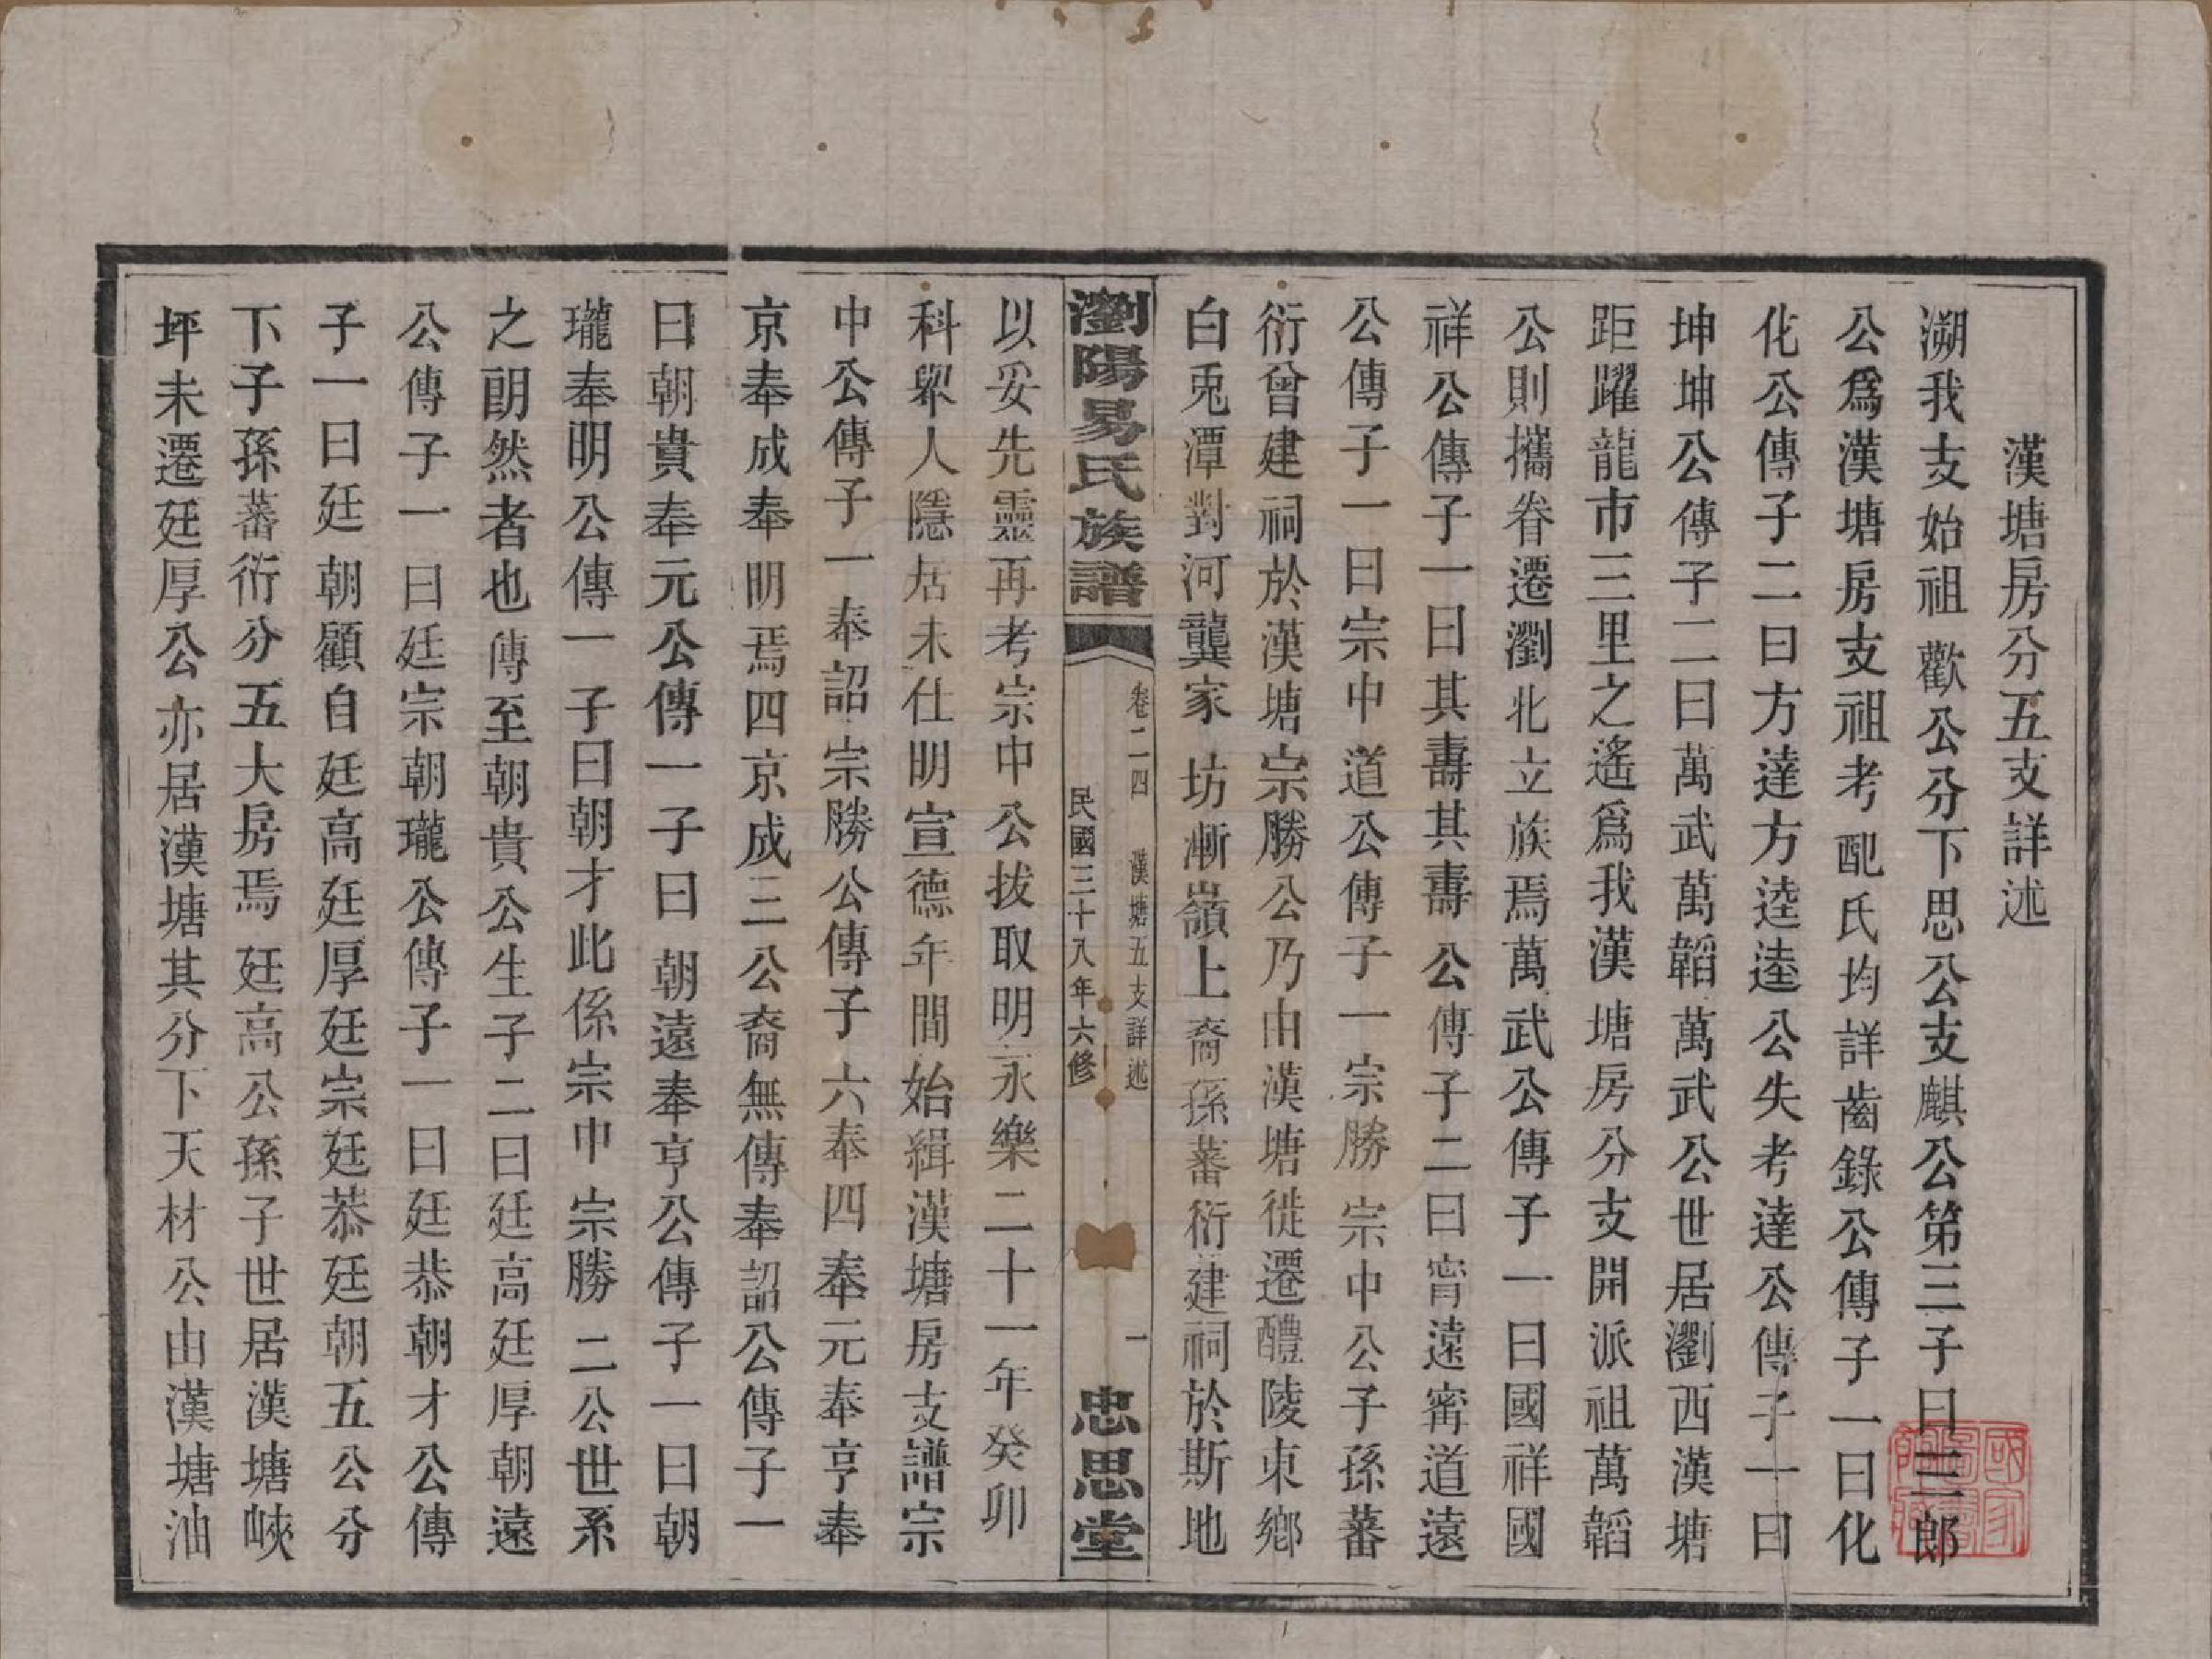 漢塘房分五支詳述
溯我支始祖歡公分下思公支麒公第三子曰三郎
公爲漢塘房支祖考配氏均詳齒錄公傳子一曰化
化公傳子二曰方達方逵逵公失考達公傳子一曰
坤坤公傳子二曰萬武萬韜萬武公世居瀏西漢塘
距躍龍市三里之遙爲我漢塘房分支開派祖萬韜
公則攜眷遷瀏北立族焉萬武公傳子一曰國祥國
祥公傳子一曰其壽其壽公傳子二曰甯遠甯道遠
公傳子一曰宗中道公傳子一宗勝宗中公子孫蕃
衍曾建祠於漢塘宗勝公乃由漢塘徙遷醴陵東鄉
白兎潭對河龔家坊漸嶺上裔孫蕃衍建祠於斯地
瀏陽易氏族譜
卷二四
漢塘五支詳述
民國三十八年六修
一
忠思堂
以妥先靈再考宗中公拔取明永樂二十一年癸卯
科舉人隱居未仕明宣德年間始緝漢塘房支譜宗
中公傳子一奉詔宗勝公傳子六奉四奉元奉亨奉
京奉成奉明焉四京成三公裔無傳奉詔公傳子一
曰朝貴奉元公傳一子曰朝遠奉亨公傳子一曰朝
瓏奉明公傳一子曰朝才此係宗中宗勝二公世系
之朗然者也傳至朝貴公生子二曰廷高廷厚朝遠
公傳子一曰廷宗朝瓏公傳子一曰廷恭朝才公傳
子一曰廷朝顧自廷高廷厚廷宗廷恭廷朝五公分
下子孫蕃衍分五大房焉廷高公孫子世居漢塘峽
坪未遷廷厚公亦居漢塘其分下天材公由漢塘油
國家圖書館藏